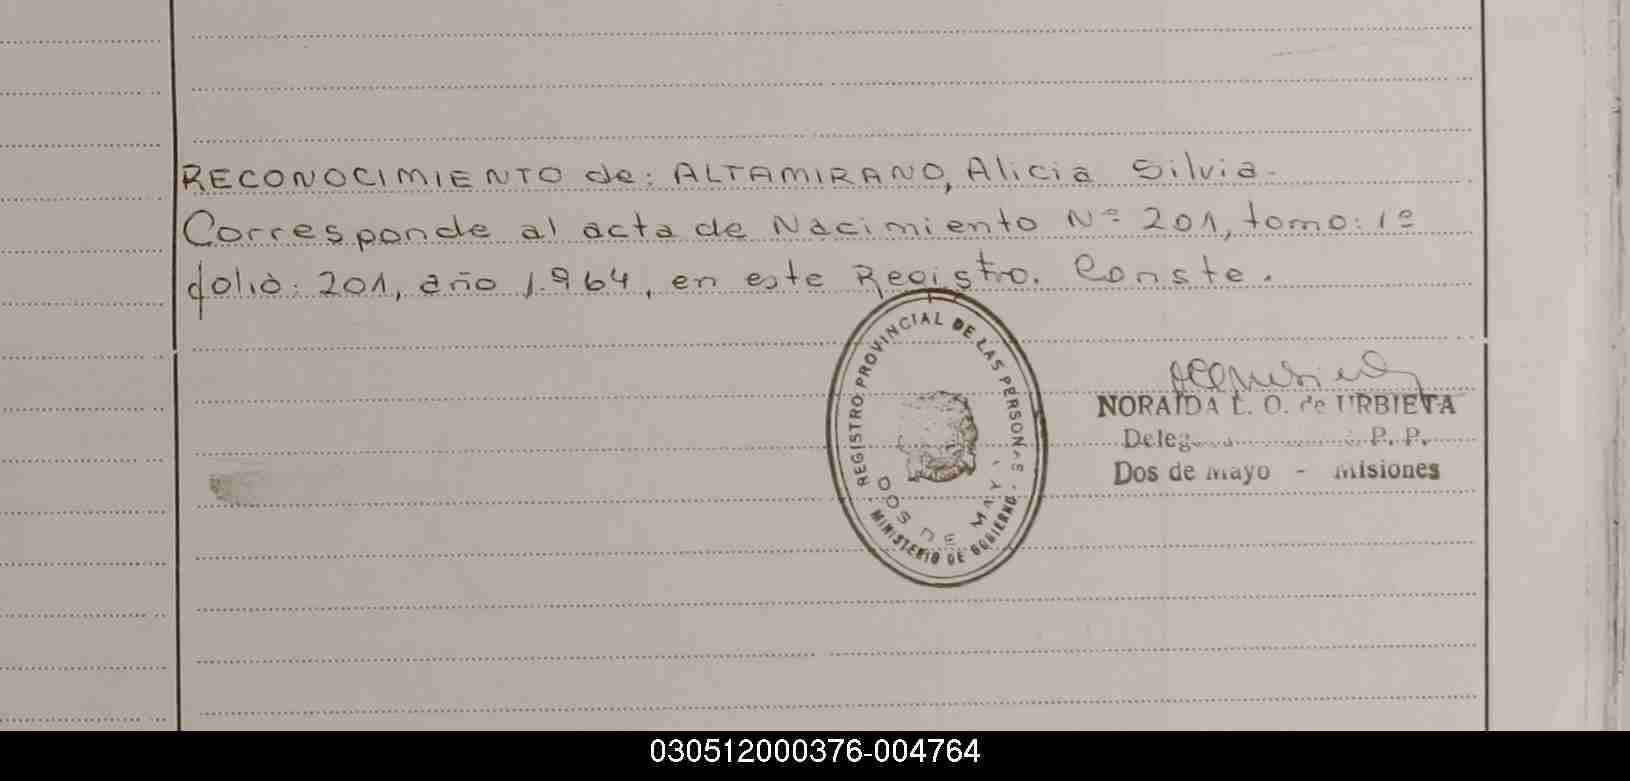 RECONOCIMIENTO de: ALTAMIRANO, Alicia Silvia.
Corresponde al acta de Nacimiento Nº 201, tomo: 1º
folio: 201, año 1.964, en este Registro. Conste.
REGISTRO PROVINCIAL DE LAS PERSONAS
DOS DE MAYO
MINISTERIO DE GOBIERNO
NORAIDA L. O. de URBIETA
P. P.
Dos de Mayo - Misiones
030512000376-004764